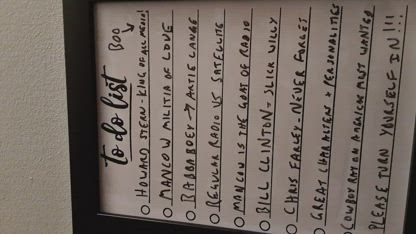 to do list
BOO
HOWARD STERN - KING OF ALL MEDIA!
MANCOW MILITIA OF LOVE
BABBABOEY → ARTIE LANGE
REGULAR RADIO VS SATELLITE
MANCOW IS THE GOAT OF RADIO
BILL CLINTON = SLICK WILLY
CHRIS FARLEY - NEVER FORGET
GREAT CHARACTERS + PERSONALITIES
COWBOY RAY ON AMERICAS MOST WANTED
PLEASE TURN YOURSELF IN!!!